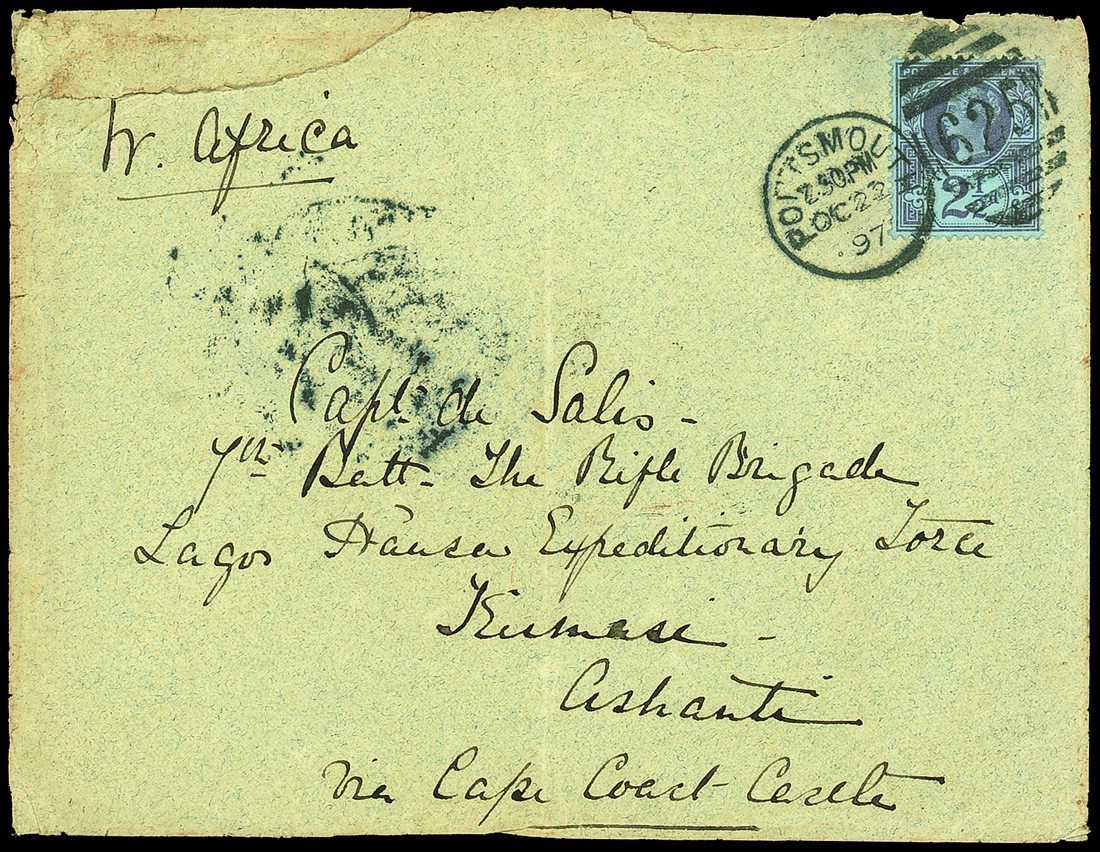 W. Africa
PORTSMOUTH
2.30PM
OC 22
97
625
2½d
Capt. de Salis -
7th Batt. The Rifle Brigade
Lagos Hausa Expeditionary Force
Kumasi -
Ashanti
via Cape Coast Castle